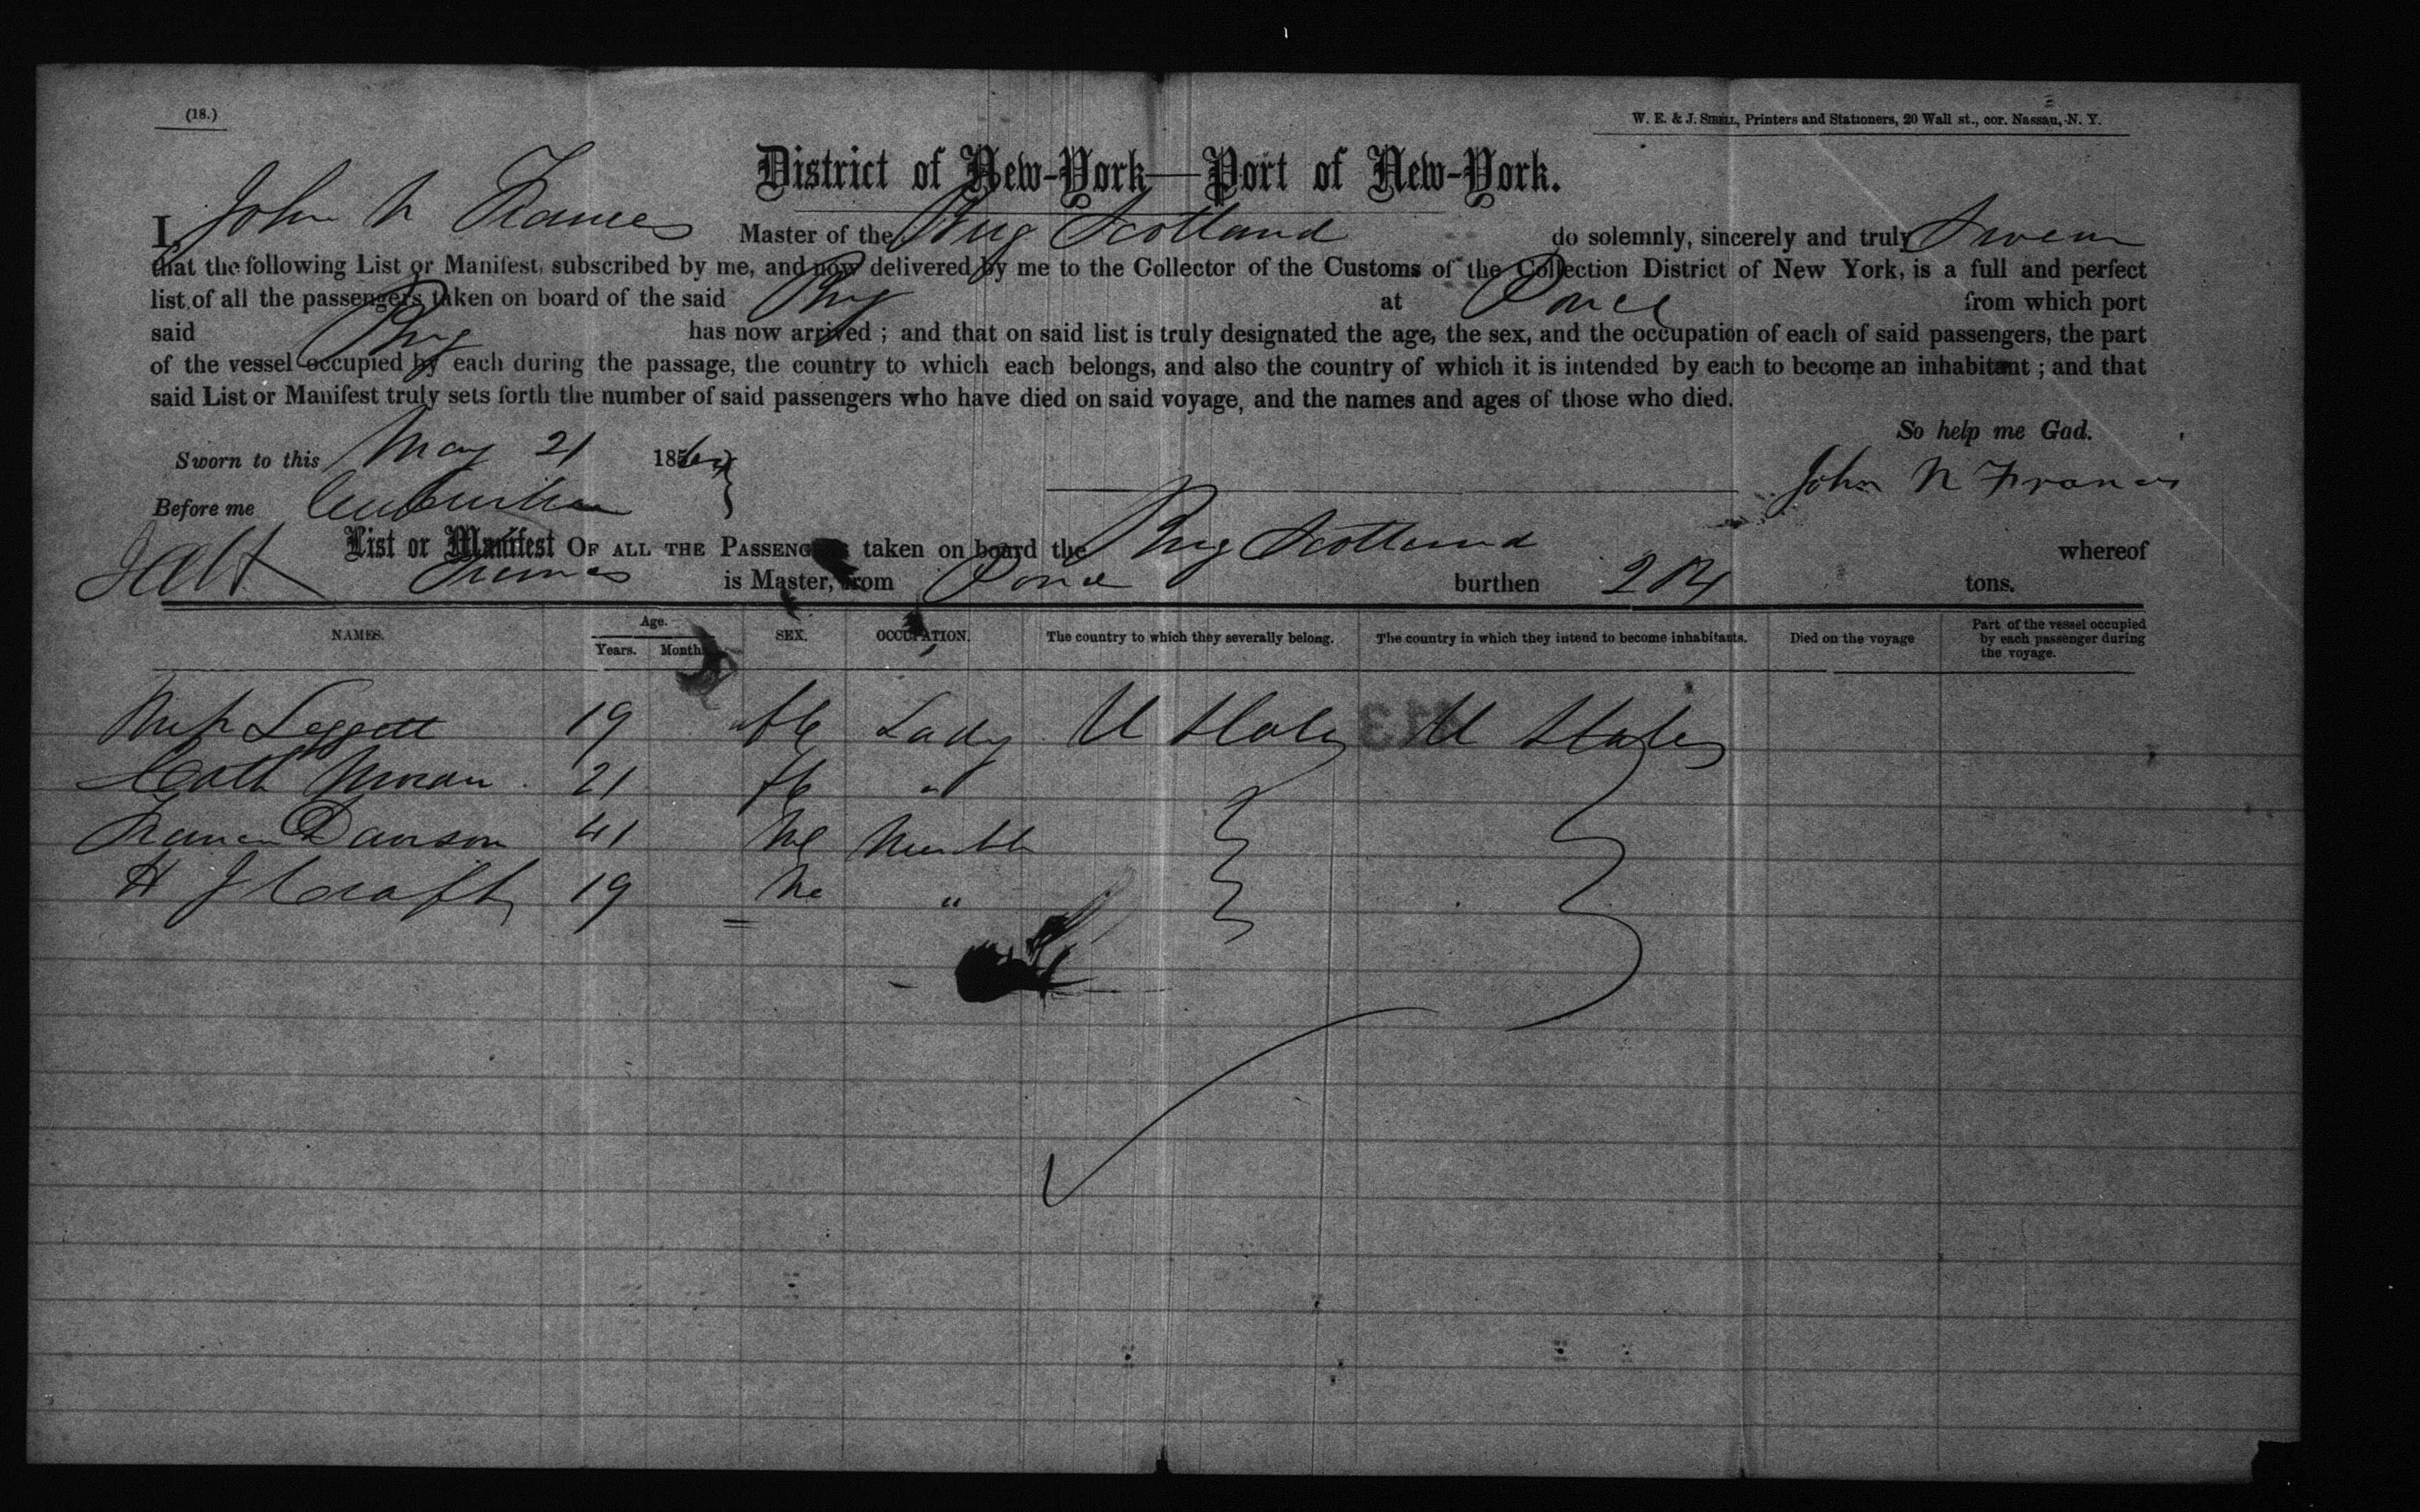 (18.)
W. E. & J. SIBELL, Printers and Stationers, 20 Wall st., cor. Nassau, N. Y.
District of New-York—Port of New-York.
I, John N Frances Master of the Brig Scotland do solemnly, sincerely and truly Swear
that the following List or Manifest, subscribed by me, and now delivered by me to the Collector of the Customs of the Collection District of New York, is a full and perfect
list of all the passengers taken on board of the said Brig at Ponce from which port
said Brig has now arrived ; and that on said list is truly designated the age, the sex, and the occupation of each of said passengers, the part
of the vessel occupied by each during the passage, the country to which each belongs, and also the country of which it is intended by each to become an inhabitant ; and that
said List or Manifest truly sets forth the number of said passengers who have died on said voyage, and the names and ages of those who died.
So help me God.
Sworn to this May 21 18
John N Francis
Before me
List or Manifest OF ALL THE PASSENGERS taken on board the Brig Scotland whereof
is Master, from Ponce burthen tons.
NAMES. Age. Years. Months. SEX. OCCUPATION. The country to which they severally belong. The country in which they intend to become inhabitants. Died on the voyage Part of the vessel occupied by each passenger during the voyage.
Leggett 19 fe Lady U States U States
Cath 21 fe "
Dawson 41 Me
H J Craft 19 Me "